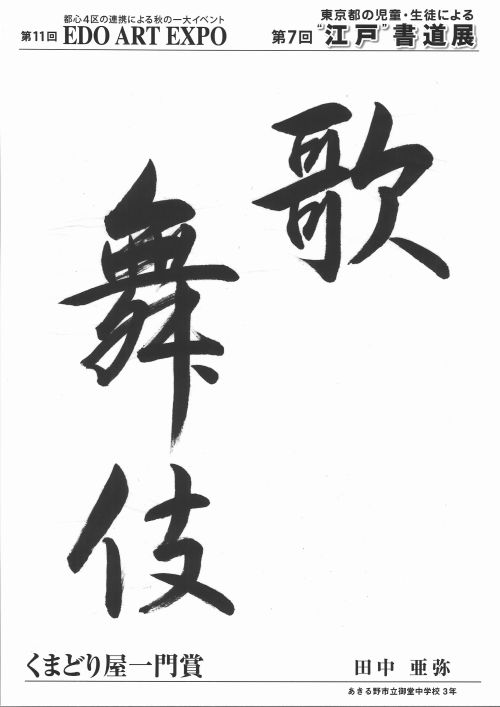 都心4区の連携による秋の一大イベント
第11回 EDO ART EXPO
東京都の児童・生徒による
第7回 “江戸”書道展
歌
舞
伎
くまどり屋一門賞
田中 亜弥
あきる野市立御堂中学校 3年